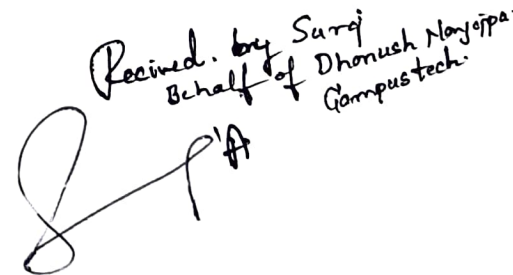 Recived. by Suraj
Behalf of Dhanush Nanjappa.
Campustech.